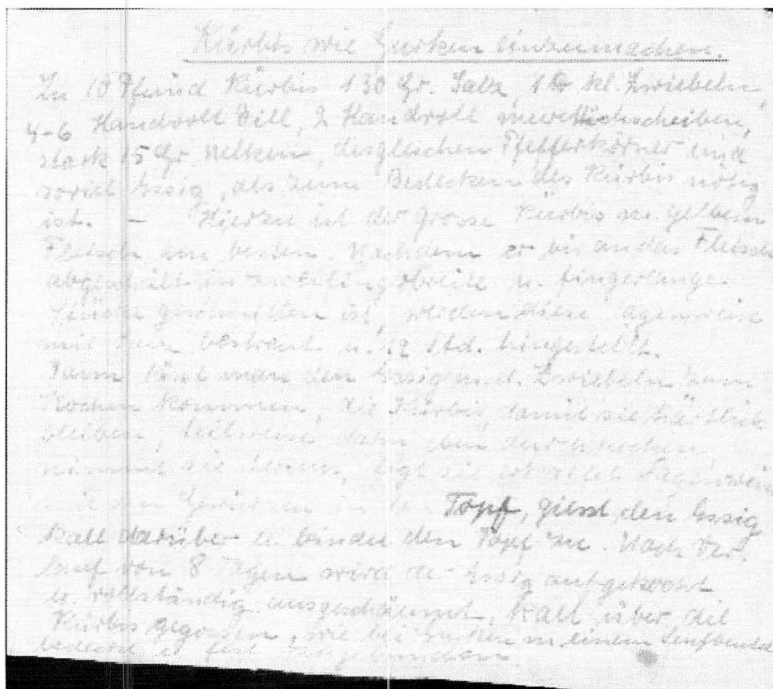 Kürbis wie Gurken einzumachen.
Zu 10 Pfund Kürbis 130 Gr. Salz, 1 kl. Zwiebeln,
4-6 Handvoll Dill, 2 Handvoll Meerettichscheiben,
stark 15 Gr. Nelken, desgleichen Pfefferkörner und
soviel Essig, als zum Bedecken des Kürbis nötig
ist. — Hierzu ist der grosse Kürbis m. gelbem
Fleisch am besten. Nachdem er bis an das Fleisch
abgeschält in zweifingerbreite u. fingerlange
Stücke geschnitten ist, werden diese lagenweise
mit bestreut u. 12 Std. hingestellt.
Dann lässt man den Essig m. d. Zwiebeln zum
Kochen kommen, die Kürbis, damit sie härtlich
bleiben, teilweise darin eben durchkochen,
nimmt sie heraus, legt sie erkaltet lagenweise
mit den Gewürzen in den Topf, giesst den Essig
kalt darüber u. bindet den Topf zu. Nach Ver-
lauf von 8 Tagen wird der Essig aufgekocht
u. vollständig ausgeschäumt, kalt über die
Kürbis gegossen, wie bei Gurken m. einem Senfbeutel
bedeckt u. fest zugebunden.